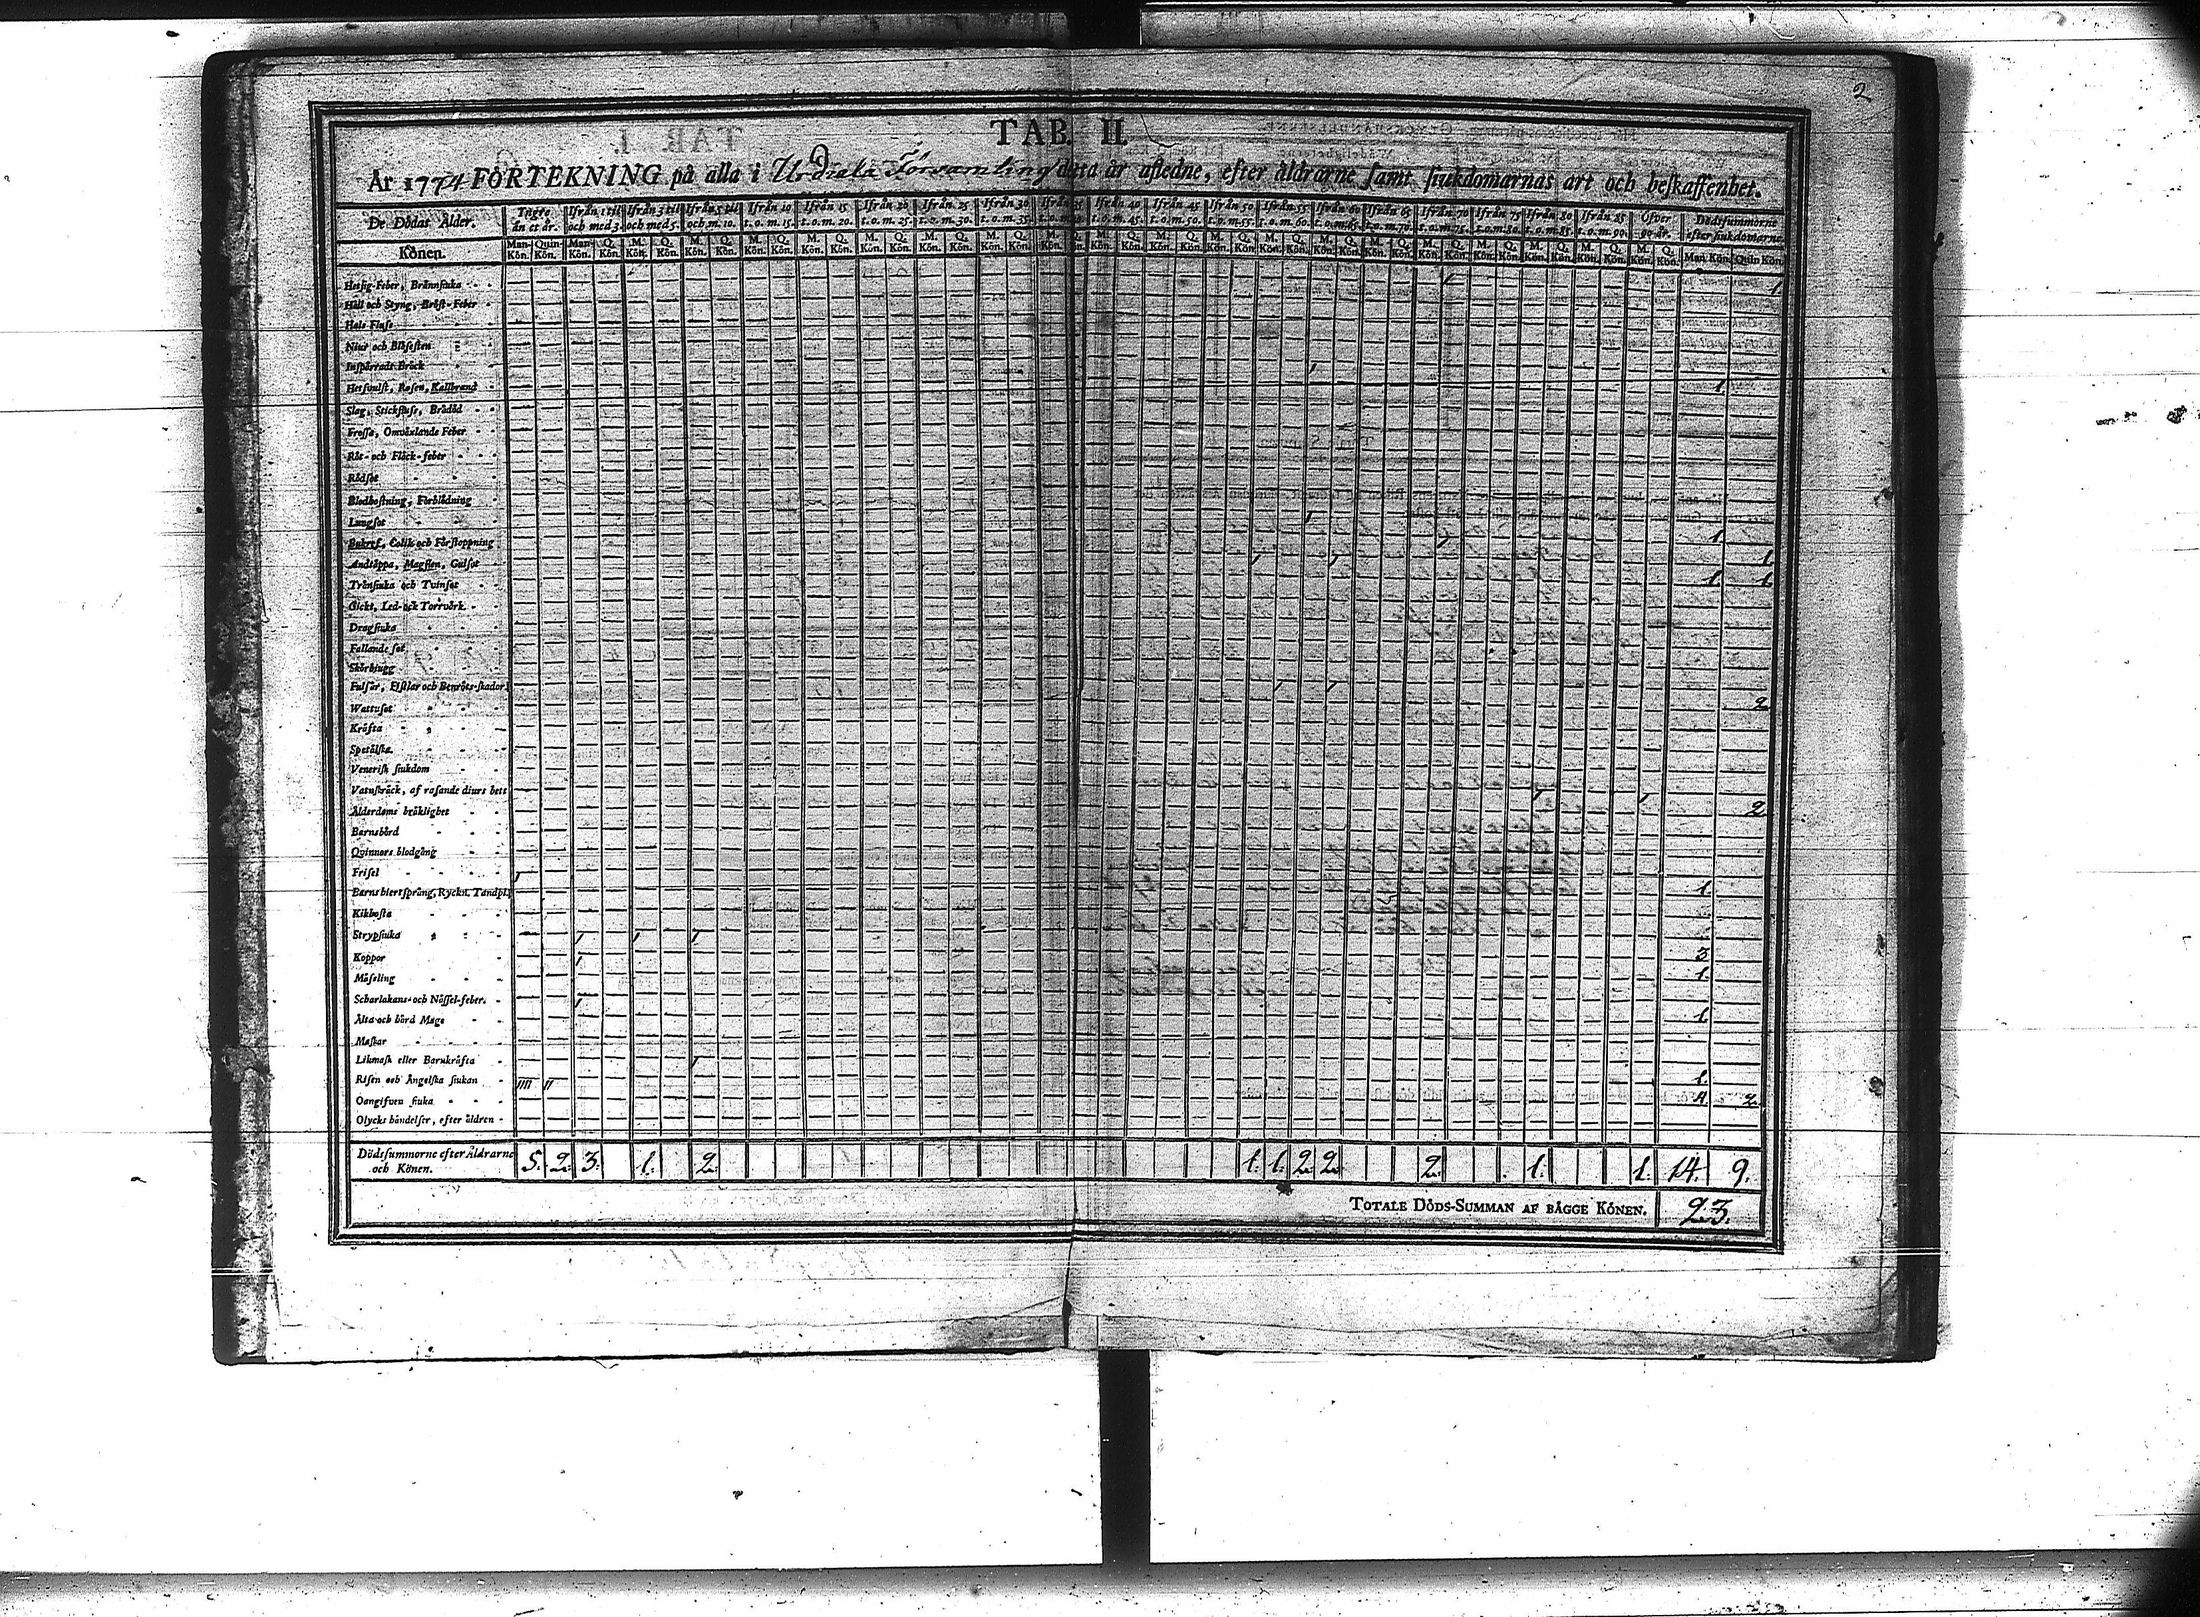 2
TAB. II.
År 1774 FÖRTEKNING på alla i Urdiala Församling detta år afledne, efter åldrarne samt siukdomarnas art och beskaffenhet.
De Dödas Ålder. Yngre än et år. Ifrån 1 til och med 3. Ifrån 3 til och med 5. Ifrån 5 til och m. 10. Ifrån 10 t.o.m. 15. Ifrån 15 t.o.m. 20. Ifrån 20 t.o.m. 25. Ifrån 25 t.o.m. 30. Ifrån 30 t.o.m. 35. Ifrån 35 t.o.m. 40. Ifrån 40 t.o.m. 45. Ifrån 45 t.o.m. 50. Ifrån 50 t.o.m. 55. Ifrån 55 t.o.m. 60. Ifrån 60 t.o.m. 65. Ifrån 65 t.o.m. 70. Ifrån 70 t.o.m. 75. Ifrån 75 t.o.m. 80. Ifrån 80 t.o.m. 85. Ifrån 85 t.o.m. 90. Öfver 90 år. Dödssummorne efter siukdomarne.
Könen. Man-Kön. Quin-Kön. Man-Kön. Q. Kön. M. Kön. Q. Kön. M. Kön. Q. Kön. M. Kön. Q. Kön. M. Kön. Q. Kön. M. Kön. Q. Kön. M. Kön. Q. Kön. M. Kön. Q. Kön. M. Kön. Q. Kön. M. Kön. Q. Kön. M. Kön. Q. Kön. M. Kön. Q. Kön. M. Kön. Q. Kön. M. Kön. Q. Kön. M. Kön. Q. Kön. M. Kön. Q. Kön. M. Kön. Q. Kön. M. Kön. Q. Kön. M. Kön. Q. Kön. M. Kön. Q. Kön. Man Kön. Quin Kön.
Hetsig-Feber, Brännsiuka 1
Håll och Styng, Bröst-Feber
Hals Fluss
Niur och Blåsesten
Inspärradt Bråck
Hetsvulst, Rosen, Kallbrand 1
Slag, Stickfluss, Brådöd
Frossa, Omväxlande Feber
Röt- och Fläck-feber
Rödsot
Blodhostning, Förblödning
Lungsot
Bukref, Colik och Förstoppning 1.
Andtäppa, Magsien, Gulsot 1.
Trånsiuka och Tvinsot 1. 1.
Gickt, Led- och Torrvärk
Dragsiuka
Fallande sot
Skörbiugg
Fulsår, Fistlar och Benröts-skador
Wattusot 2
Kräfta
Spetälska
Venerisk siukdom
Vatnskräck, af rasande diurs bett
Ålderdoms bräklighet 2
Barnsbörd
Quinnors blodgång
Frisel
Barns hiertsprång, Ryckn. Tandpl. 1.
Kikhosta
Strypsiuka
Koppor 3
Mässling 1.
Scharlakans- och Nässel-feber
Älta och hård Mage 1.
Maskar
Likmask eller Barnkräfta
Risen och Ängelska siukan 1.
Oangifven siuka 4. 2
Olycks händelser, efter åldren
Dödssummorne efter Åldrarne och Könen. 5. 2. 3. 1. 2. 1. 1. 2. 2. 2. 1. 1. 14. 9.
TOTALE DÖDS-SUMMAN AF BÅGGE KÖNEN. 23.